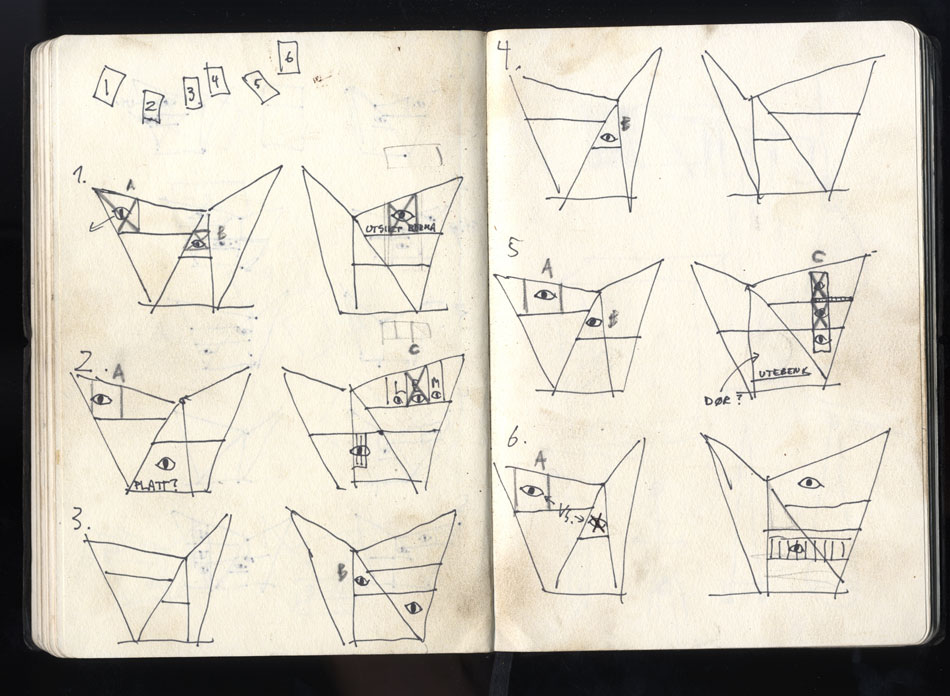 1
2
3
4
5
6
1.
A
B
UTSIKT
2.
A
C
L
M
PLATT?
3.
B
4.
B
5
A
B
C
UTEBENK
DØR?
6.
A
VS.